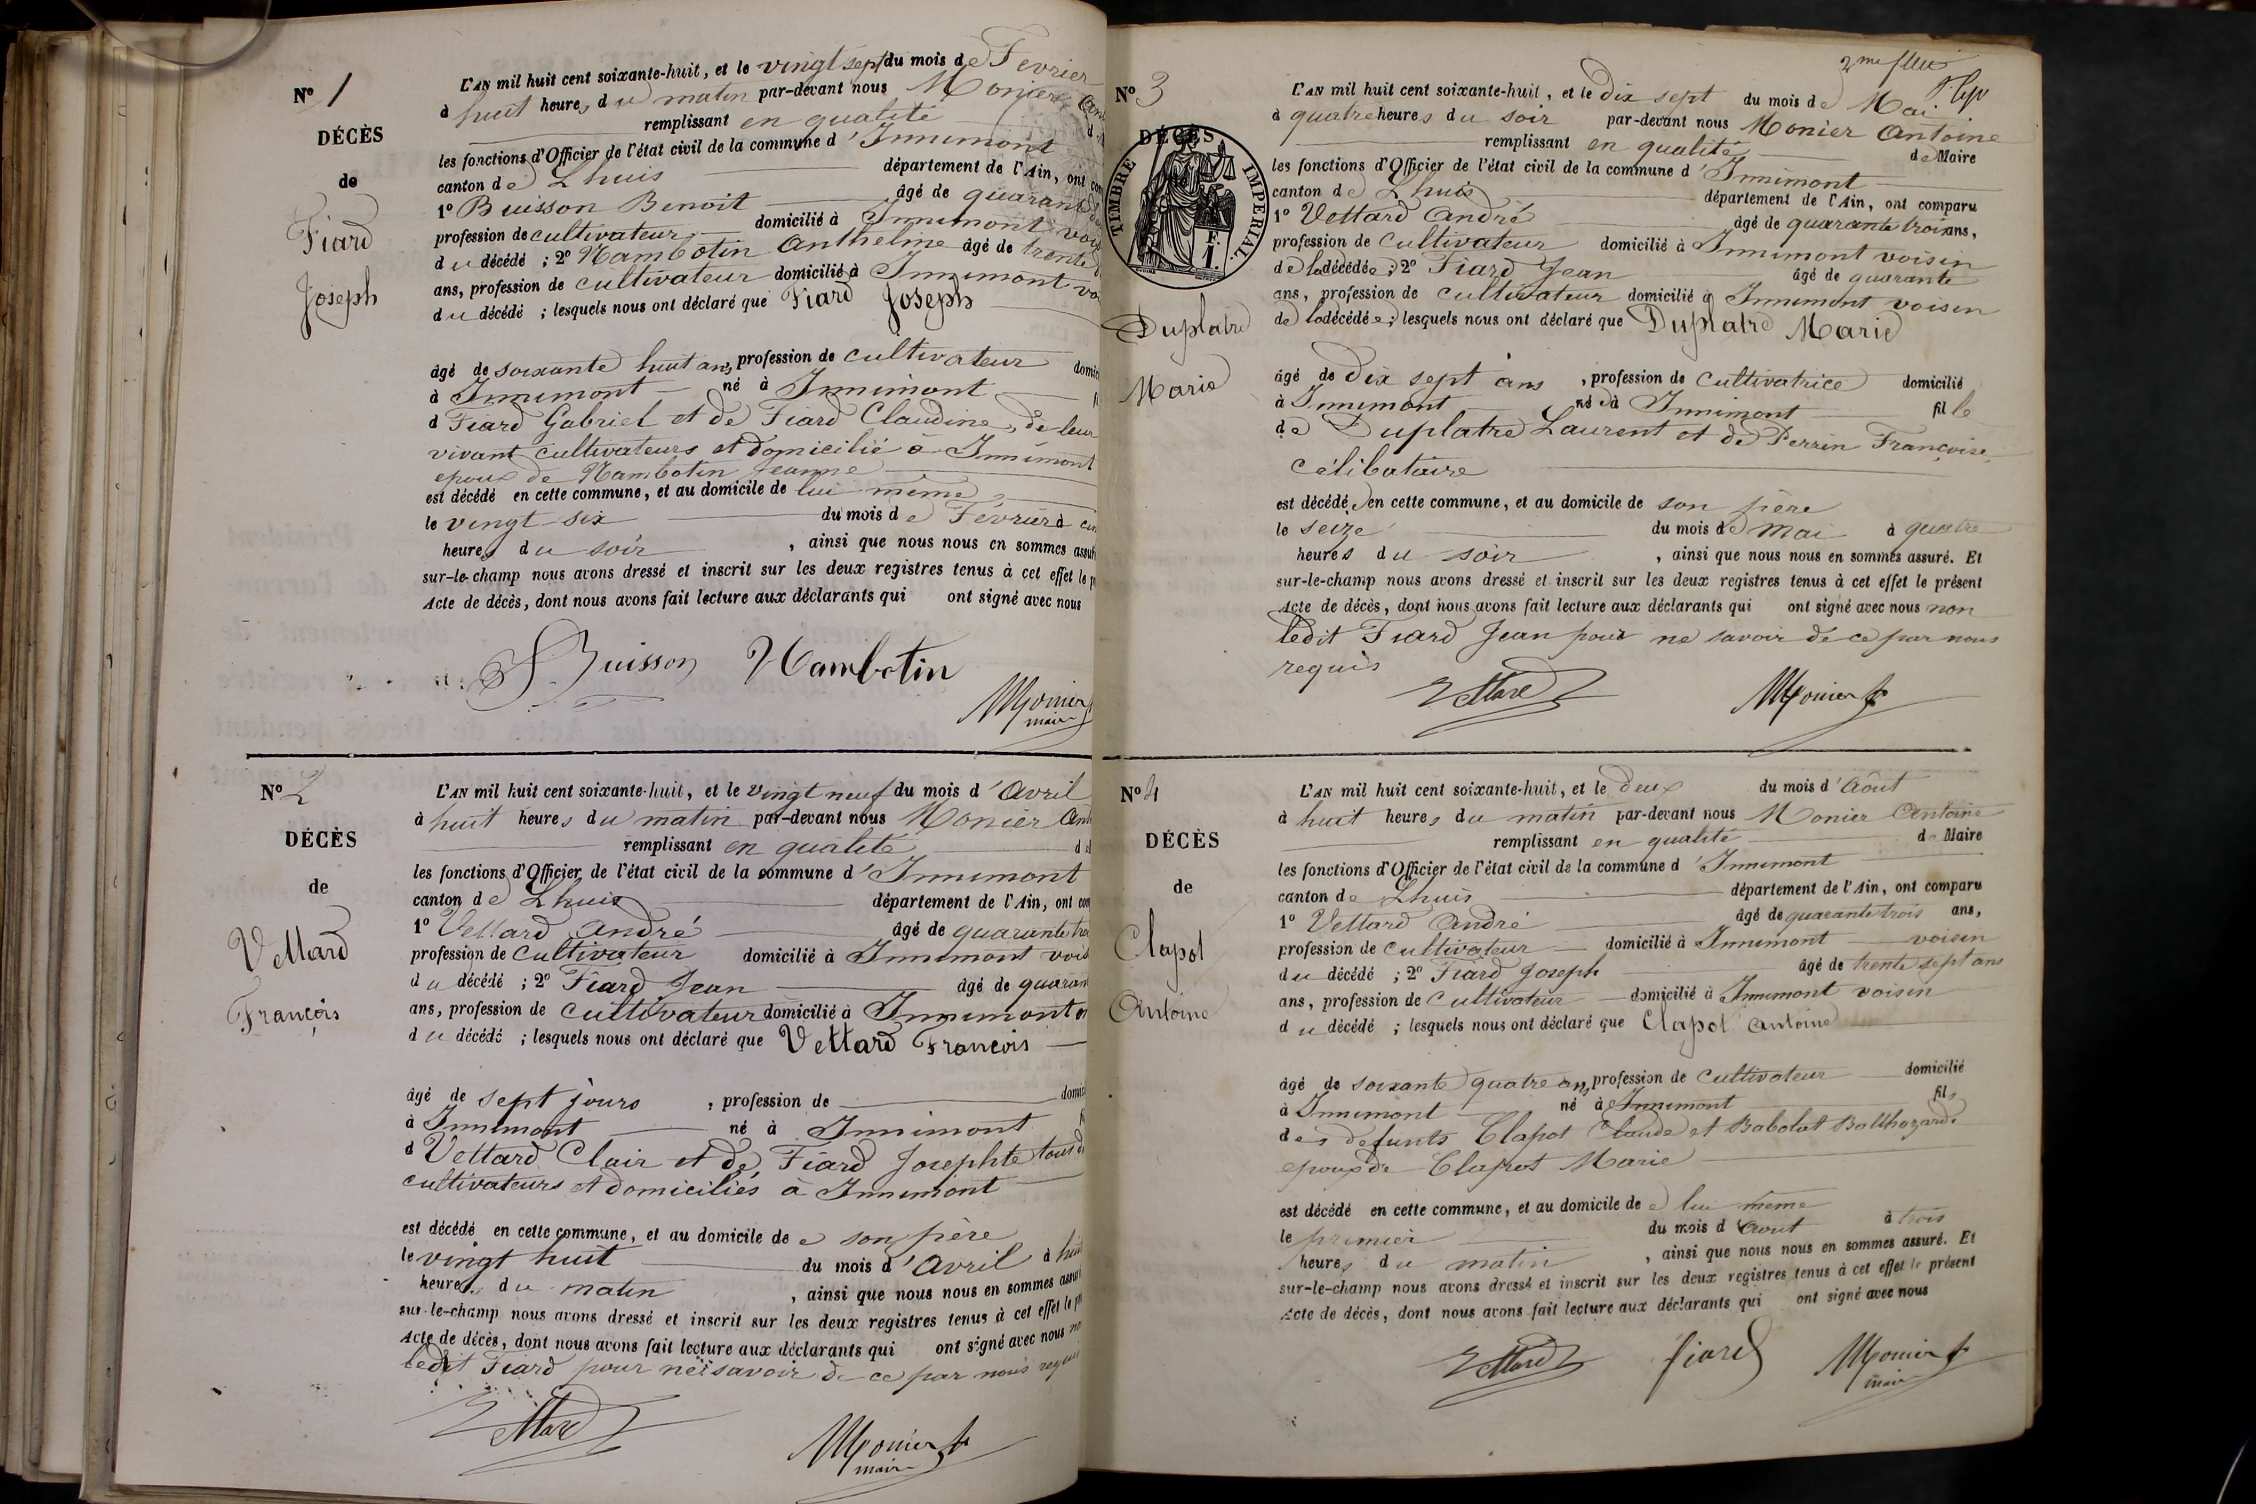 N° 1
DÉCÈS
de
Fiard
Joseph
L'AN mil huit cent soixante-huit, et le vingt sept du mois de Fevrier
à huit heures du matin par-devant nous Monier
remplissant en qualité
les fonctions d'Officier de l'état civil de la commune d'Innimont
canton de Lhuis département de l'Ain, ont
1° Buisson Benoit âgé de
profession de cultivateur domicilié à Innimont
du décédé ; 2° Nambotin Anthelme âgé de trente
ans, profession de cultivateur domicilié à Innimont
du décédé ; lesquels nous ont déclaré que Fiard Joseph
âgé de soixante huit ans, profession de cultivateur
à Innimont né à Innimont
d Fiard Gabriel et de Fiard Claudine, de leur
vivant cultivateurs et domicilié à Innimont
epoux de Nambotin Jeanne
est décédé en cette commune, et au domicile de lui même
le vingt-six du mois de Février à
heures du soir , ainsi que nous nous en sommes
sur-le-champ nous avons dressé et inscrit sur les deux registres tenus à cet effet le
Acte de décès, dont nous avons fait lecture aux déclarants qui ont signé avec nous
Buisson Nambotin
Monier
maire
N° 2
DÉCÈS
de
Vettard
François
L'AN mil huit cent soixante-huit, et le vingt neuf du mois d'Avril
à huit heures du matin par-devant nous Monier
remplissant en qualité
les fonctions d'Officier de l'état civil de la commune d'Innimont
canton de Lhuis département de l'Ain, ont
1° Vettard André âgé de quarante
profession de cultivateur domicilié à Innimont
du décédé ; 2° Fiard Jean âgé de
ans, profession de cultivateur domicilié à Innimont
du décédé ; lesquels nous ont déclaré que Vettard François
âgé de sept jours , profession de
à Innimont né à Innimont
d Vettard Clair et de Fiard Josephte tous
cultivateurs et domiciliés à Innimont
est décédé en cette commune, et au domicile de son père
le vingt huit du mois d'Avril à
heures du matin , ainsi que nous nous en sommes
sur-le-champ nous avons dressé et inscrit sur les deux registres tenus à cet effet le
Acte de décès, dont nous avons fait lecture aux déclarants qui ont signé avec nous
ledit Fiard pour ne savoir de ce par nous
Vettard
Monier
maire
2me
N° 3
DÉCÈS
TIMBRE IMPERIAL.
F.
1.
Duplatre
Marie
L'AN mil huit cent soixante-huit, et le Dix sept du mois de Mai
à quatre heures du soir par-devant nous Monier Antoine
remplissant en qualité de Maire
les fonctions d'Officier de l'état civil de la commune d'Innimont
canton de Lhuis département de l'Ain, ont comparu
1° Vettard André âgé de quarante trois ans,
profession de cultivateur domicilié à Innimont voisin
de la décédée ; 2° Fiard Jean âgé de quarante
ans, profession de cultivateur domicilié à Innimont voisin
de la décédée ; lesquels nous ont déclaré que Duplatre Marie
âgé de dix sept ans , profession de cultivatrice domicilié
à Innimont née à Innimont fille
de Duplatre Laurent et de Perrin Françoise
célibataire
est décédée en cette commune, et au domicile de son père
le seize du mois de mai à quatre
heures du soir , ainsi que nous nous en sommes assuré. Et
sur-le-champ nous avons dressé et inscrit sur les deux registres tenus à cet effet le présent
Acte de décès, dont nous avons fait lecture aux déclarants qui ont signé avec nous non
ledit Fiard Jean pour ne savoir de ce par nous
requis
Vettard Monier
N° 4
DÉCÈS
de
Clapot
Antoine
L'AN mil huit cent soixante-huit, et le deux du mois d'Août
à huit heures du matin par-devant nous Monier Antoine
remplissant en qualité de Maire
les fonctions d'Officier de l'état civil de la commune d'Innimont
canton de Lhuis département de l'Ain, ont comparu
1° Vettard André âgé de quarante trois ans,
profession de cultivateur domicilié à Innimont voisin
du décédé ; 2° Fiard Joseph âgé de trente sept ans
ans, profession de cultivateur domicilié à Innimont voisin
du décédé ; lesquels nous ont déclaré que Clapot Antoine
âgé de soixante quatre ans, profession de cultivateur domicilié
à Innimont né à Innimont fils
des defunts Clapot Claude et Babolat Balthazarde
epoux de Clapot Marie
est décédé en cette commune, et au domicile de lui même
le premier du mois d'Aout à trois
heures du matin , ainsi que nous nous en sommes assuré. Et
sur-le-champ nous avons dressé et inscrit sur les deux registres tenus à cet effet le présent
Acte de décès, dont nous avons fait lecture aux déclarants qui ont signé avec nous
Vettard fiard Monier
maire